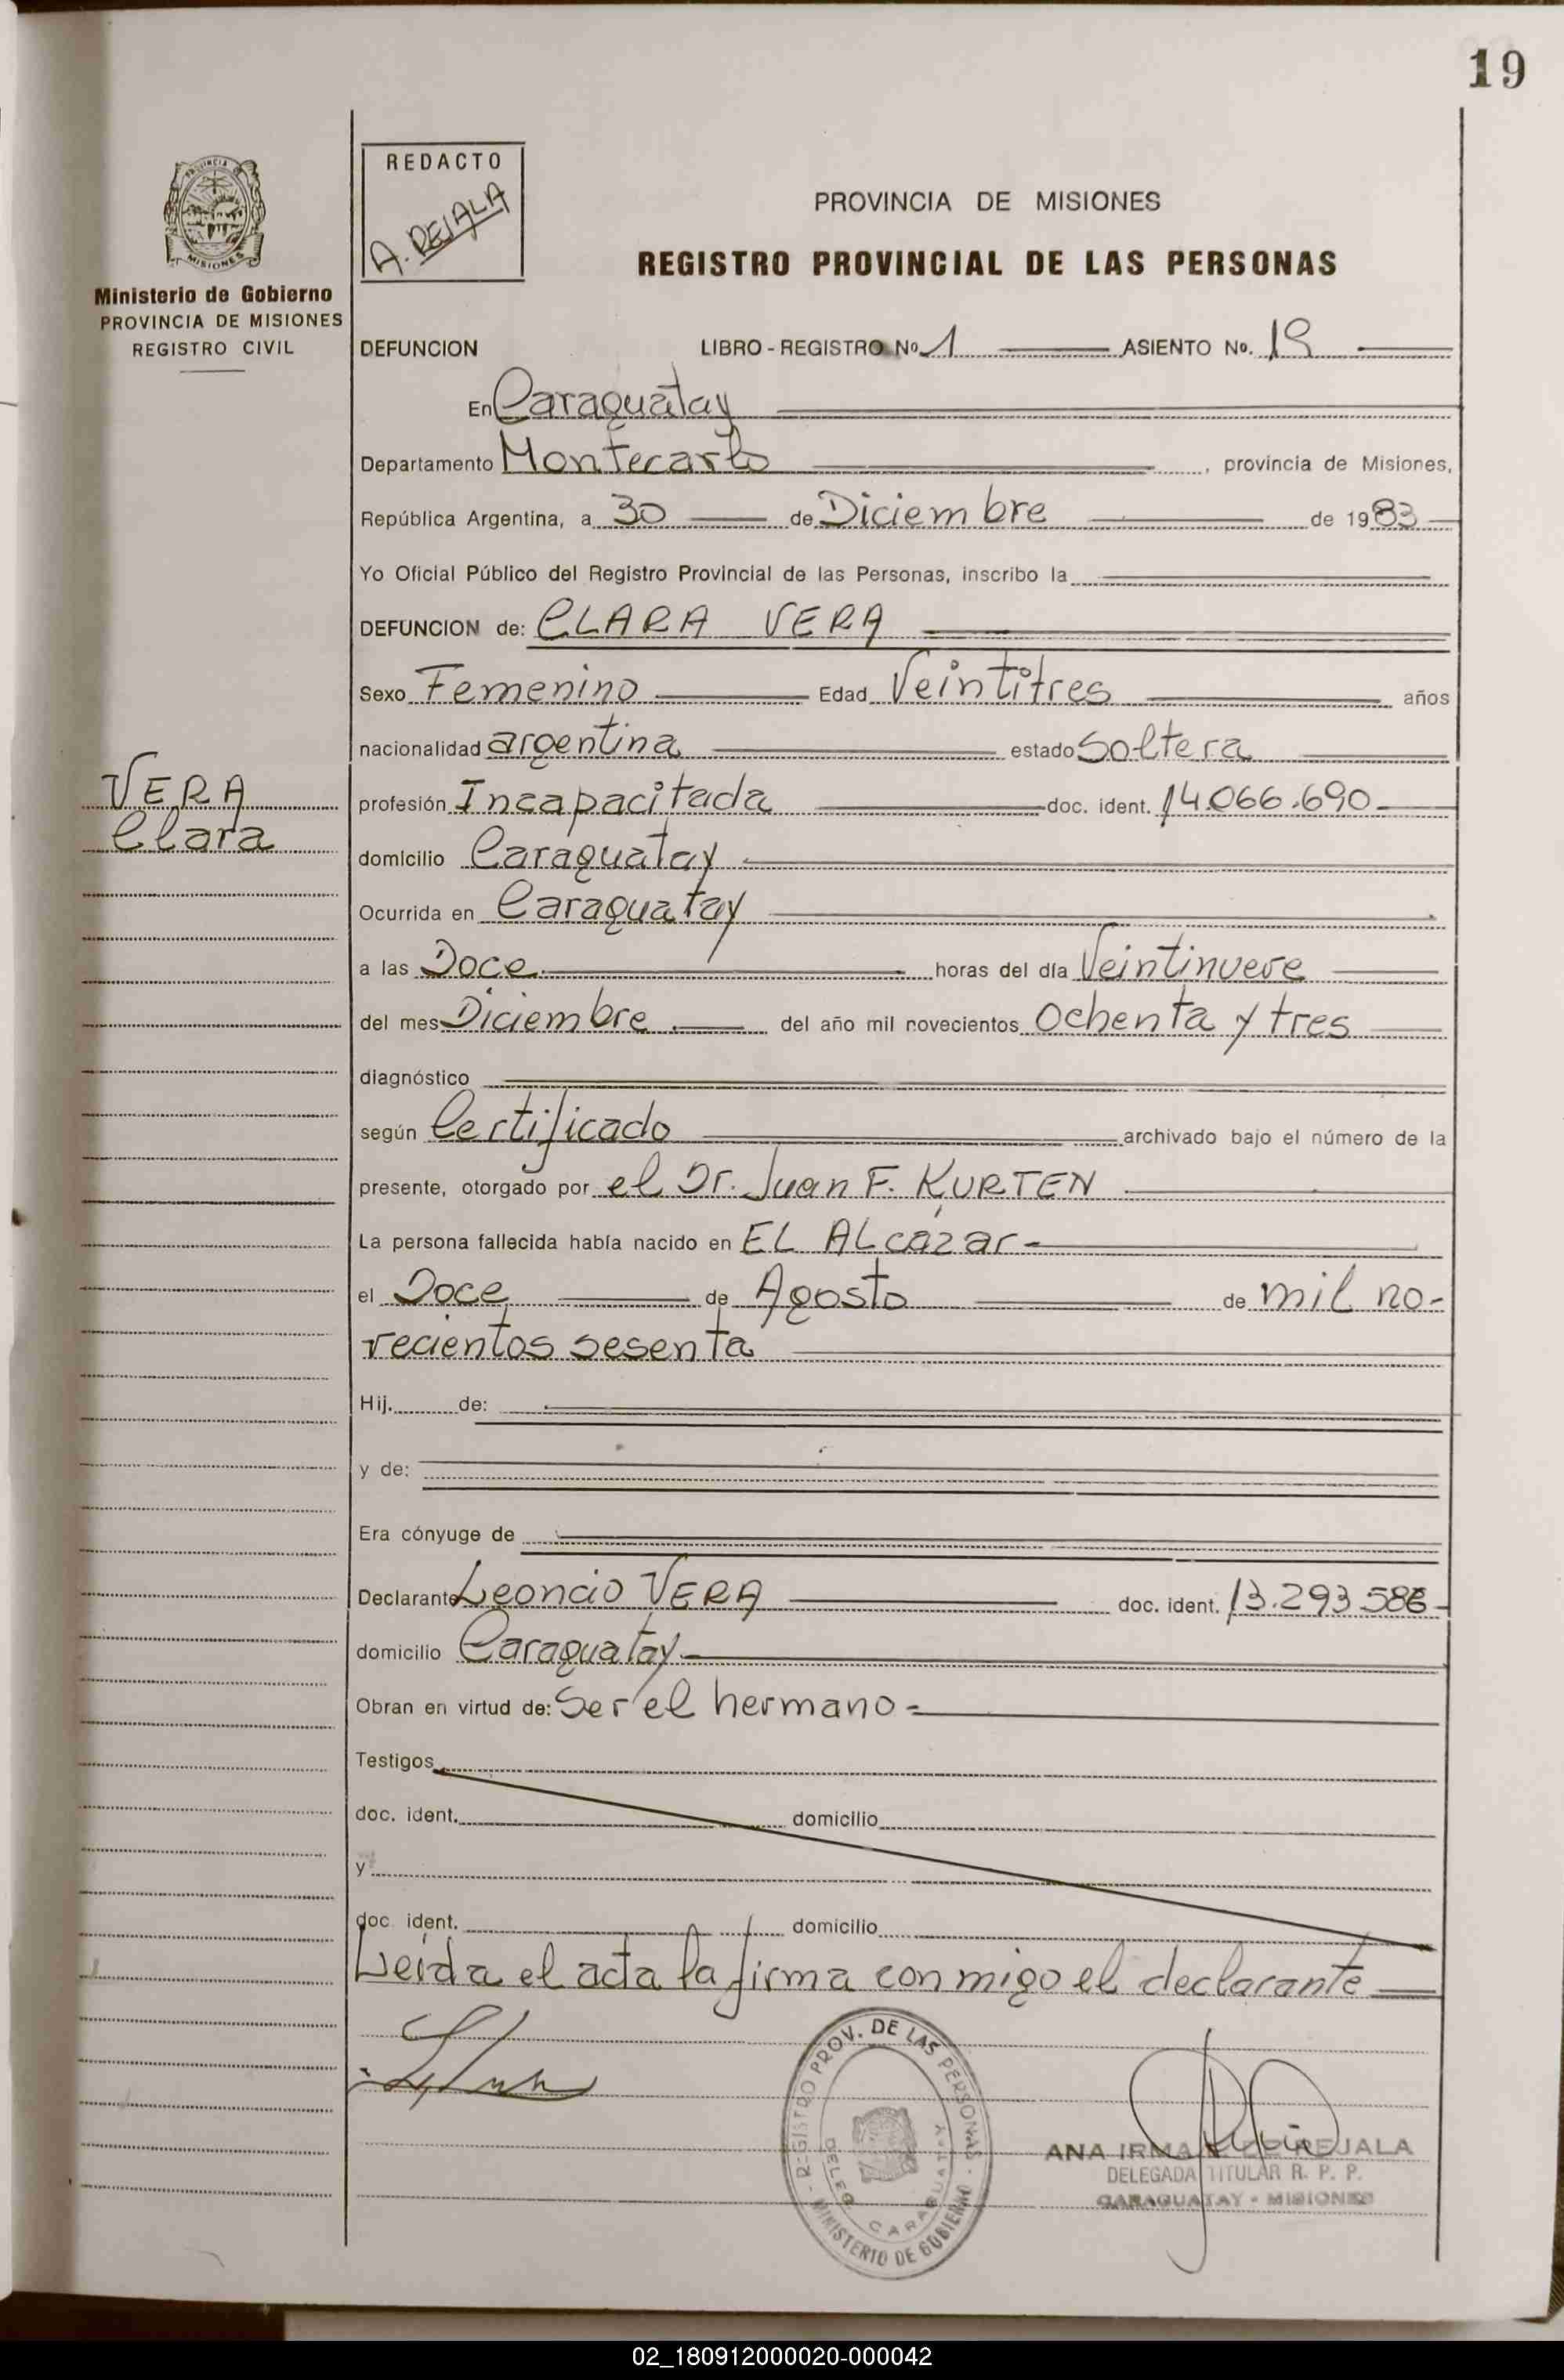 19
REDACTO
A. REJALA
PROVINCIA DE MISIONES
REGISTRO PROVINCIAL DE LAS PERSONAS
PROVINCIA DE
MISIONES
Ministerio de Gobierno
PROVINCIA DE MISIONES
REGISTRO CIVIL
DEFUNCION LIBRO - REGISTRO Nº 1 ASIENTO Nº. 19
En Caraguatay
Departamento Montecarlo, provincia de Misiones,
República Argentina, a 30 de Diciembre de 1983
Yo Oficial Público del Registro Provincial de las Personas, inscribo la
DEFUNCION de: CLARA VERA
Sexo Femenino Edad Veintitres años
nacionalidad argentina estado Soltera
VERA
Clara
profesión Incapacitada doc. ident. 14.066.690
domicilio Caraguatay
Ocurrida en Caraguatay
a las Doce horas del día Veintinueve
del mes Diciembre del año mil novecientos Ochenta y tres
diagnóstico
según Certificado archivado bajo el número de la
presente, otorgado por el Dr. Juan F. KURTEN
La persona fallecida había nacido en EL ALcázar-
el Doce de Agosto de mil no-
vecientos sesenta
Hij. de:
y de:
Era cónyuge de
Declarante Leoncio VERA doc. ident. 13.293.586
domicilio Caraguatay
Obran en virtud de: Ser el hermano-
Testigos
doc. ident. domicilio
y
doc. ident. domicilio
Leída el acta la firma conmigo el declarante
REGISTRO PROV. DE LAS PERSONAS - MINISTERIO DE GOBIERNO -
DELEG. CARAGUATAY
ANA IRMA REJALA
DELEGADA TITULAR R. P. P.
CARAGUATAY - MISIONES
02_180912000020-000042